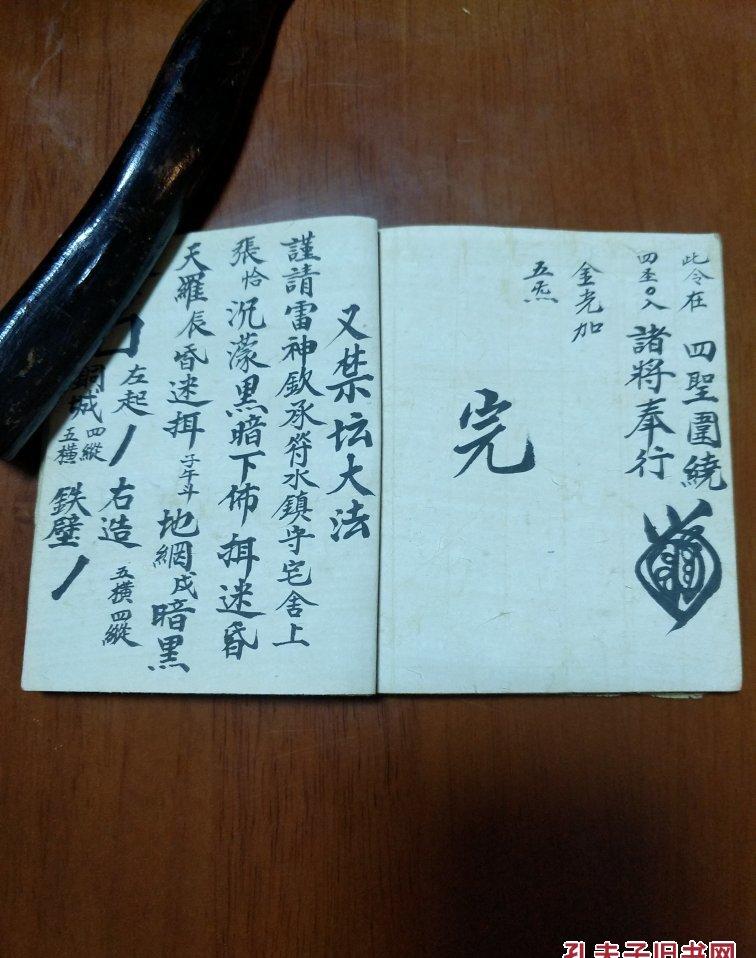 此令在 四聖圍繞
四至〇入 諸將奉行
金光加
五炁
完
又禁坛大法
謹請雷神欽承符水鎮守宅舍上
張恰沉濛黑暗下佈挕迷昏
天羅辰昏迷挕子午斗地網戌暗黑
左起丿右造五横四縱
銅城四縱五横鉄壁丿
孔夫子旧书网